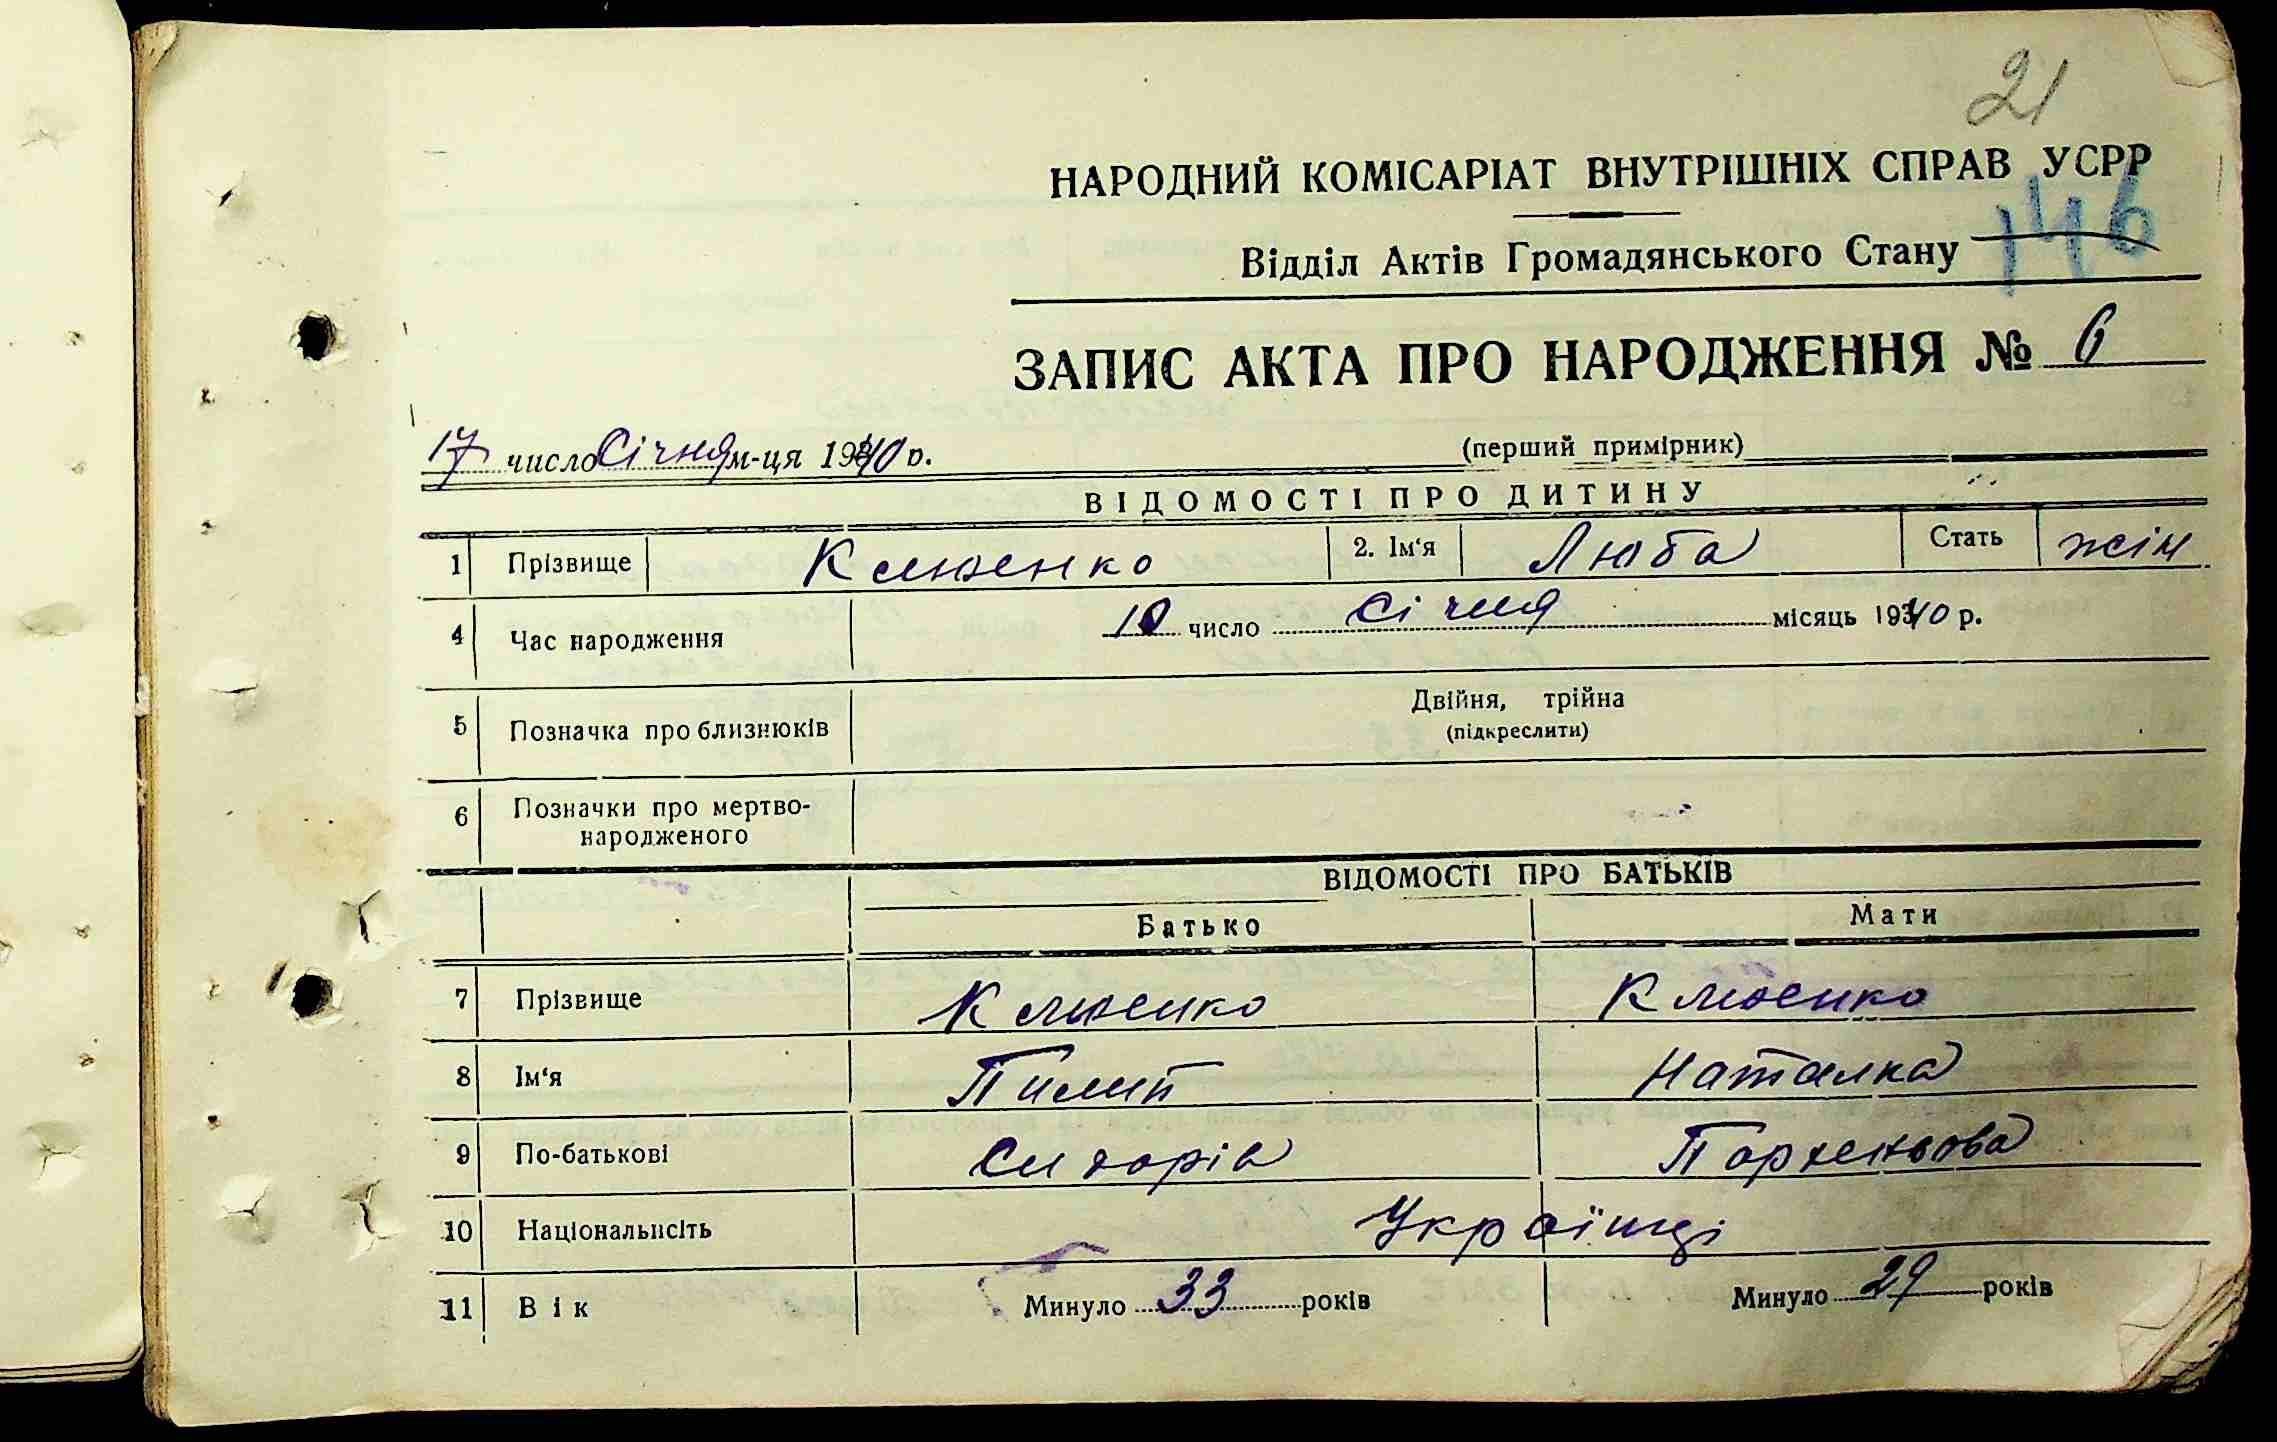 21
НАРОДНИЙ КОМІСАРІАТ ВНУТРІШНІХ СПРАВ УСРР
146
Відділ Актів Громадянського Стану
ЗАПИС АКТА ПРО НАРОДЖЕННЯ № 6
17 число Січня м-ця 1940 р.
(перший примірник)
ВІДОМОСТІ ПРО ДИТИНУ
1 Прізвище Клюенко 2. Ім‘я Люба Стать жін
4 Час народження 10 число Січня місяць 1940 р.
5 Позначка про близнюків Двійня, трійна
(підкреслити)
6 Позначки про мертво-
народженого
ВІДОМОСТІ ПРО БАТЬКІВ
Батько Мати
7 Прізвище Клюенко Клюенко
8 Ім‘я Пилип Наталка
9 По-батькові Сидорів
10 Національність Українці
11 Вік Минуло 33 років Минуло 29 років